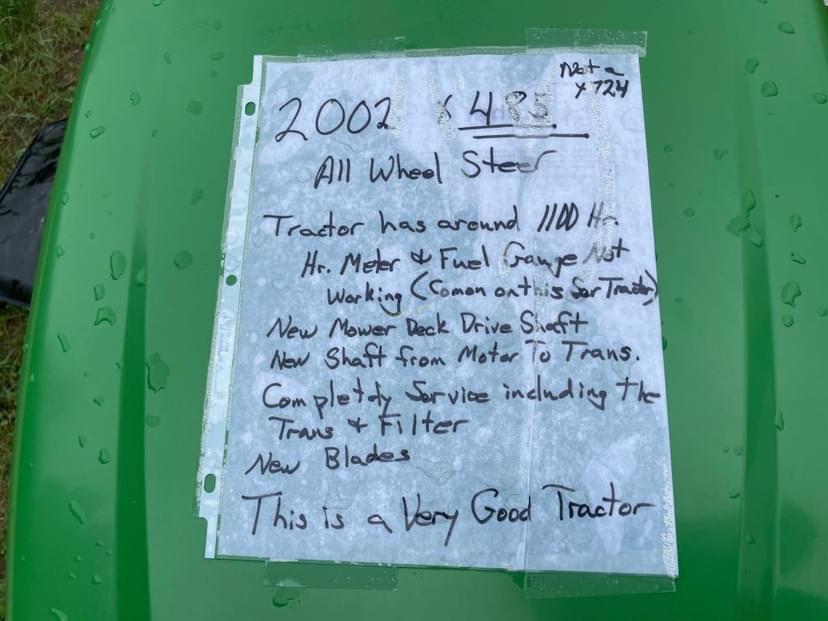 Not a
X724
2002 X 485
All Wheel Steer
Tractor has around 1100 Hr.
Hr. Meter & Fuel Gauge Not
Working (Comon on this Ser Tractor)
New Mower Deck Drive Shaft
New Shaft from Motor To Trans.
Completdy Service including the
Trans & Filter
New Blades
This is a Very Good Tractor